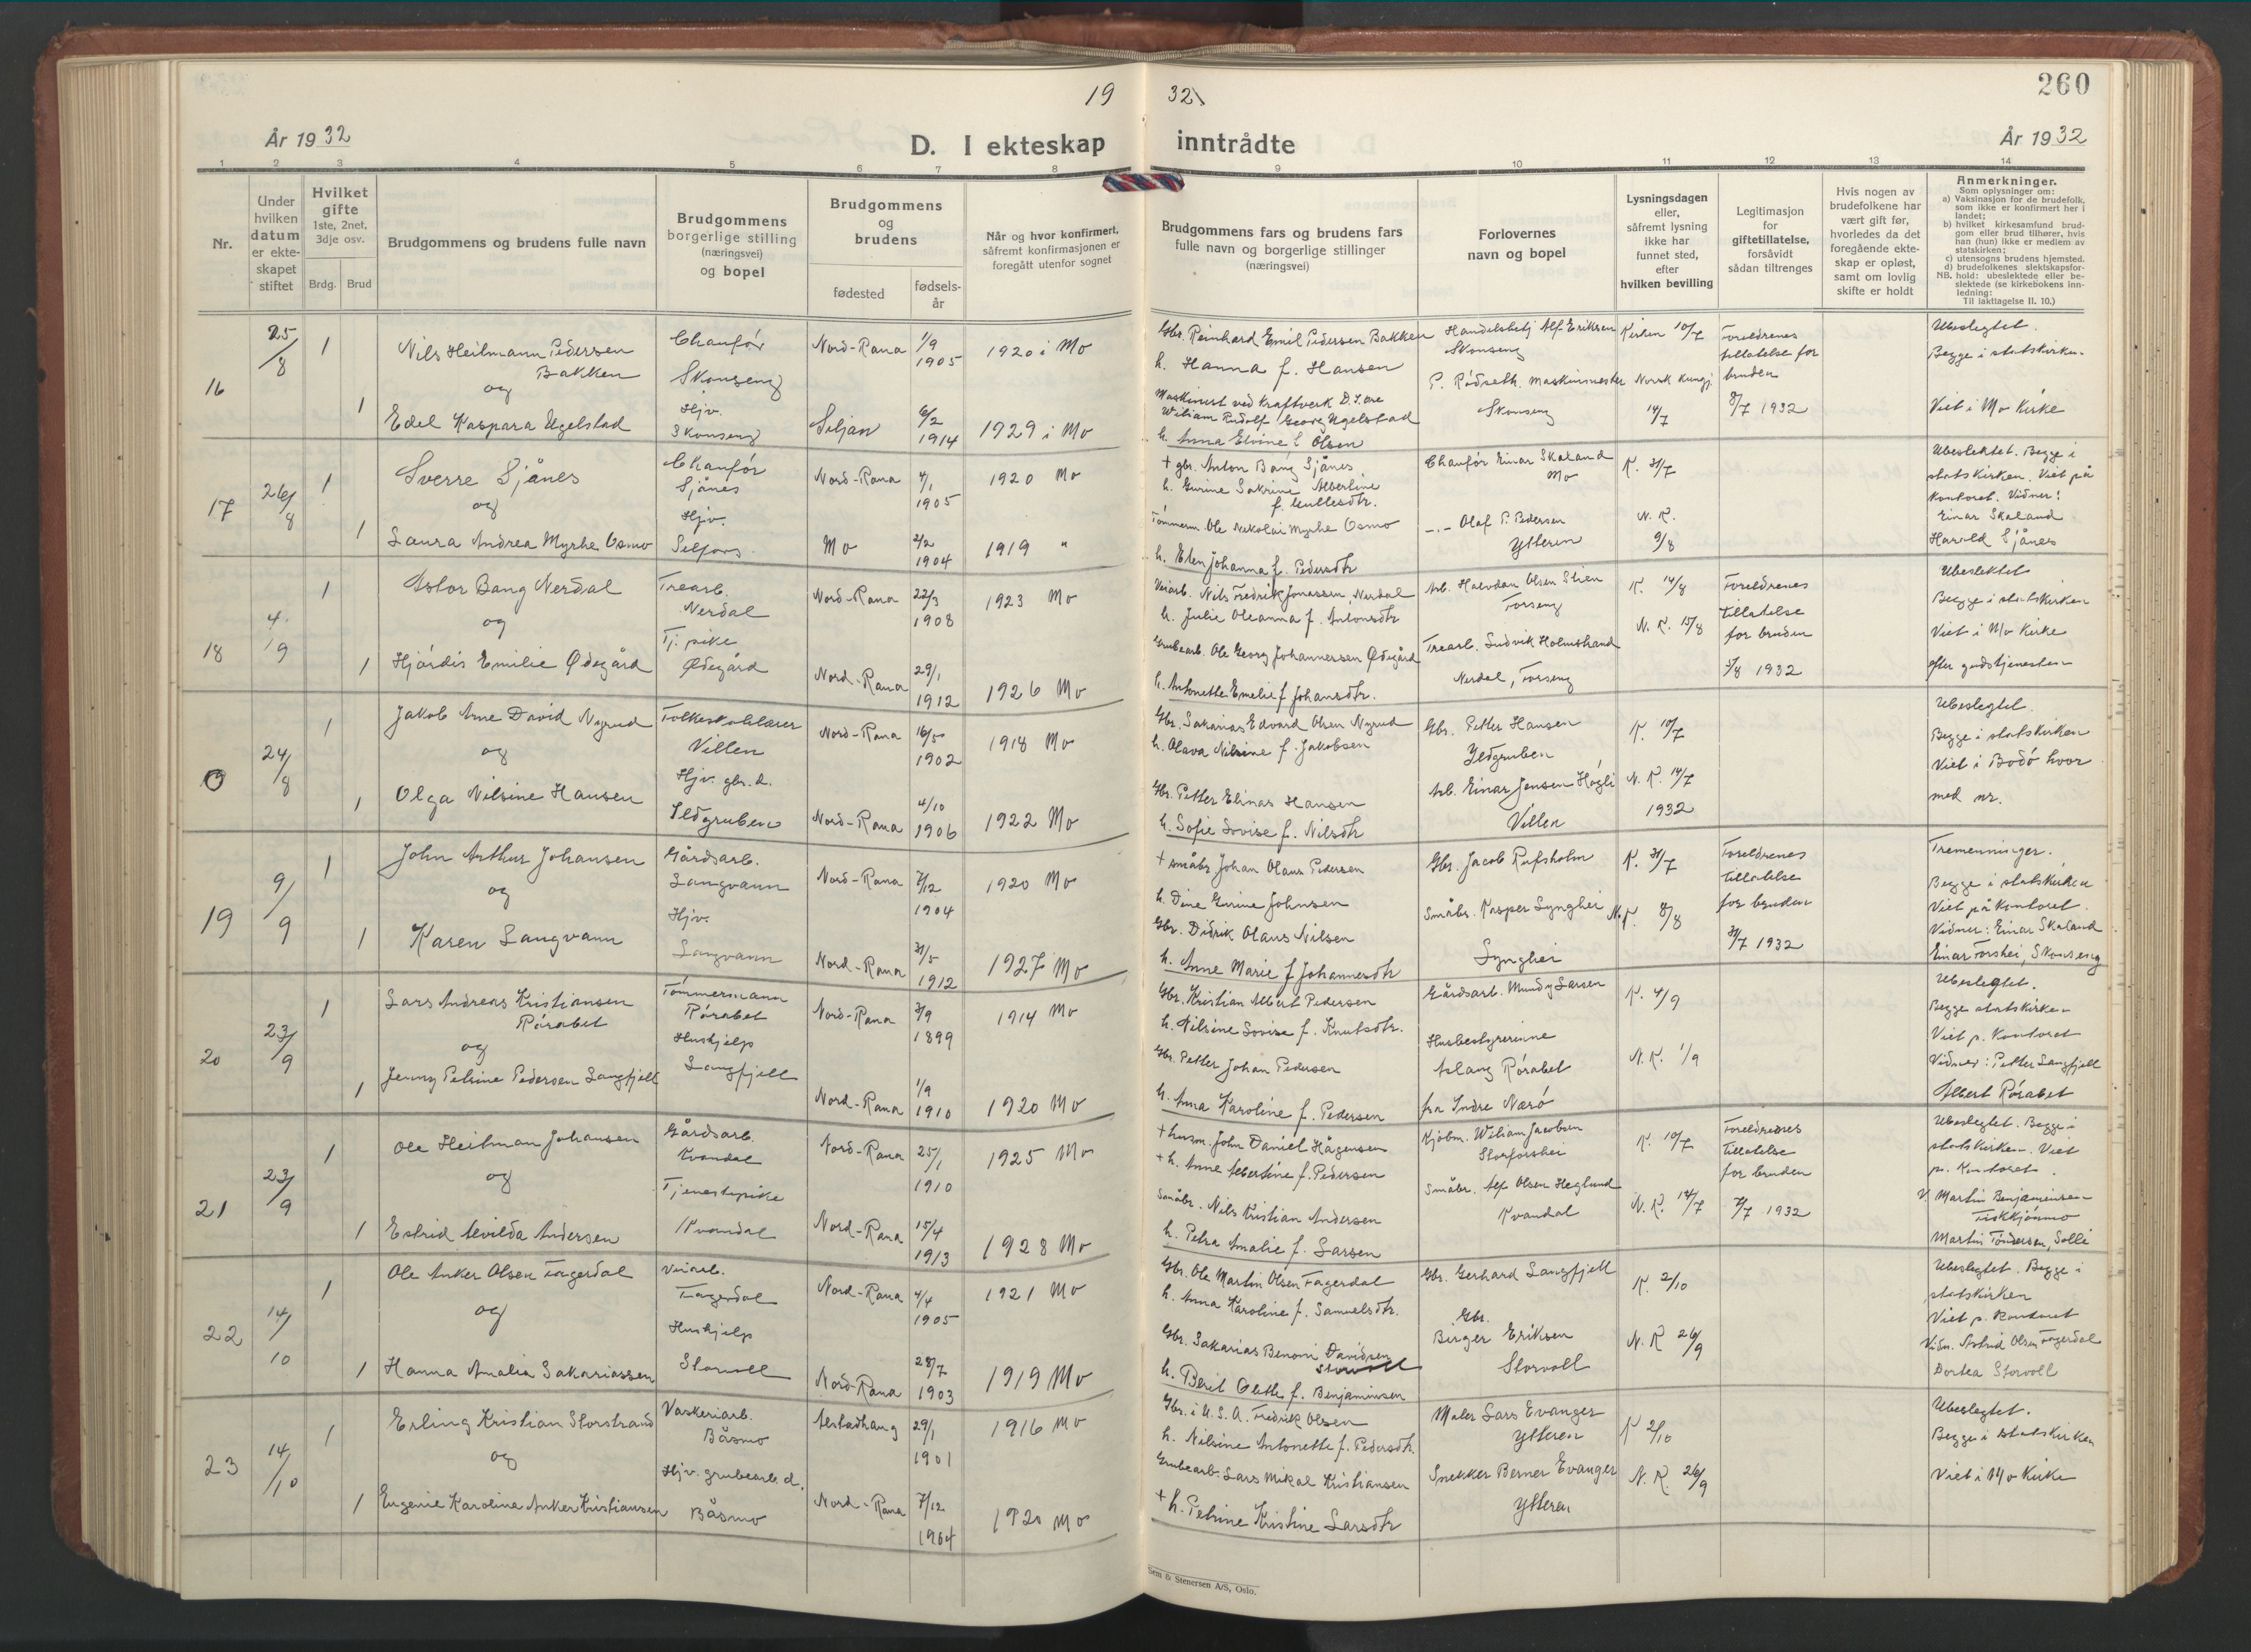 260
19 32
År 1932
D. I ekteskap inntrådte
År 1932
1 2 3 4 5 6 7 8 9 10 11 12 13 14
Nr.
Under hvilken datum er ekteskapet stiftet
Hvilket gifte 1ste, 2net, 3dje osv.
Brdg. Brud
Brudgommens og brudens fulle navn
Brudgommens borgerlige stilling (næringsvei) og bopel
Brudgommens og brudens
fødested
fødselsår
Når og hvor konfirmert, såfremt konfirmasjonen er foregått utenfor sognet
Brudgommens fars og brudens fars fulle navn og borgerlige stillinger (næringsvei)
Forlovernes navn og bopel
Lysningsdagen eller, såfremt lysning ikke har funnet sted, efter hvilken bevilling
Legitimasjon for giftetillatelse, forsåvidt sådan tiltrenges
Hvis nogen av brudefolkene har vært gift før, hvorledes da det foregående ekteskap er opløst, samt om lovlig skifte er holdt
Anmerkninger.
Som oplysninger om:
a) Vaksinasjon for de brudefolk, som ikke er konfirmert her i landet;
b) hvilket kirkesamfund brudgom eller brud tilhører, hvis han (hun) ikke er medlem av statskirken;
c) utensogns brudens hjemsted.
d) brudefolkenes slektskapsforhold: ubeslektede eller beslektede (se kirkebokens innledning:
NB. Til iakttagelse II. 10.)
16
25/8
1
Nils Heitmann Pedersen Bakken
og
1
Edel Kaspara Ugelstad
Chauför
Skonseng
Hjv.
Skonseng
Nord-Rana 1/9 1905
1920 i Mo
Siljan 6/2 1914
1929 i Mo
Gbr. Reinhard Emil Pedersen Bakken
h. Hanna f. Hansen
Maskinist ved Kraftverk
Wiliam Rudolf Georg Ugelstad
h. Anna Elvine f Olsen
Handelsbetj Alf Eriksen
Skonseng
P. Rödseth. Maskinmester
Skonseng
Kirken 10/7
Norsk Kungj.
14/7
Foreldrenes
tillatelse for
bruden
8/7 1932
Ubeslegtet.
Begge i statskirken.
Viet i Mo Kirke
17
26/8
1
Sverre Sjånes
og
1
Laura Andrea Myrhe Osmo
Chauför
Sjånes
Hjv.
Selfors
Nord-Rana 4/1 1905
1920 Mo
Mo 2/2 1904
1919 "
+ gbr. Anton Bang Sjånes
h. Gurine Sakrine Albertine
f. Gullesdtr.
Tömmerm. Ole Nikolai Myrhe Osmo
h. Elen Johanna f. Pedersdtr
Chauför Einar Skaland
Mo
-.- Olaf P. Pedersen
Ytteren
K. 31/7
N. K.
9/8
Ubeslektet. Begge i
statskirken. Viet på
Kontoret. Vidner:
Einar Skaland
Harald Sjånes
18
4/9
1
Astor Bang Nerdal
og
1
Hjördis Emilie Ødegård
Trearb.
Nerdal
Tj. pike
Ødegård
Nord-Rana 22/3 1908
1923 Mo
Nord-Rana 29/1 1912
1926 Mo
Veiarb. Nils Fredrik Jonassen, Nerdal
h. Julie Oleanna f. Antonsdtr
Grubearb. Ole Georg Johannersen Ødegård
h. Antonette Emelie f Johansdtr.
Arb. Halvdan Olsen Stien
Forseng
Trearb. Ludvik Holmstrand
Nerdal, Forseng
K. 14/8
N. K. 15/8
Foreldrenes
tillatelse
for bruden
5/8 1932
Ubeslektet
Begge i statskirken
Viet i Mo Kirke
efter gudstjenesten
0
24/8
1
Jakob Arne David Nyrud
og
1
Olga Nilsine Hansen
Folkeskolelærer
Villen
Hjv. gbr. d.
Ildgruben
Nord-Rana 16/5 1902
1918 Mo
Nord-Rana 4/10 1906
1922 Mo
Gbr. Sakarias Edvard Olsen Nyrud
h. Olava Nilsine f. Jakobsen
Gbr. Petter Elinas Hansen
h. Sofie Lovise f. Nilsdtr
Gbr. Petter Hansen
Ildgruben
Arb. Einar Jensen Högli
Villen
K. 10/7
N. K. 14/7
1932
Ubeslegtet.
Begge i statskirken
Viet i Bodö hvor
med nr.
19
9/9
1
John Arthur Johansen
og
1
Karen Langvann
Gårdsarb.
Langvann
Hjv.
Langvann
Nord-Rana 7/12 1904
1920 Mo
Nord-Rana 31/5 1912
1927 Mo
+ småbr Johan Olaus Pedersen
h. Dine Gurine Johnsen
Gbr. Didrik Olaus Nilsen
h. Anne Marie f Johannesdtr
Gbr. Jacob Rufsholm
Småbr. Kasper Lynghei
Lynghei
K. 31/7
N. K. 8/8
Foreldrenes
tillatelse
for bruden
31/7 1932
Tremenninger.
Begge i statskirken
Viet på Kontoret.
Vidner: Einar Skaland
Einar Forshei, Skonseng
20
23/9
1
Lars Andreas Kristiansen
Rörabet
og
1
Jenny Petrine Pedersen Langfjell
Tömmermann
Rörabet
Huskjelp
Langfjell
Nord-Rana 3/9 1899
1914 Mo
Nord-Rana 1/9 1910
1920 Mo
Gbr. Kristian Albert Pedersen
h. Nilsine Lovise f. Knutsdtr.
Gbr. Petter Johan Pedersen
h. Anna Karoline f. Pedersen
Gårdsarb. Mundy Larsen
Husbestyrerinne
Aslaug Rörabet
fra Indre Nærö
K. 4/9
N. K. 1/9
Ubeslegtet.
Begge statskirken
Viet p. Kontoret
Vidner: Petter Langfjell
Albert Rörabet
21
23/9
1
Ole Heitman Johansen
og
1
Estrid Alvilda Andersen
Gårdsarb.
Kvandal
Tjenestepike
Kvandal
Nord-Rana 25/1 1910
1925 Mo
Nord-Rana 15/4 1913
1928 Mo
+ husm. John Daniel Hågensen
+ h. Anne Albertine f. Pedersen
Småbr. Nils Kristian Andersen
h. Petra Amalie f. Larsen
Kjöbm. Wiliam Jacobsen
Storforshei
Småbr. Alf Olsen Heglund
Kvandal
K. 10/7
N. K. 14/7
Foreldrenes
tillatelse
for bruden
7/7 1932
Ubeslegtet. Begge i
statskirken. Viet
p. Kontoret.
V. Martin Benjaminsen
Fiskkjönmo
Martin Töndersen, Solli
22
14/10
1
Ole Anker Olsen Fagerdal
og
1
Hanna Amalia Sakariassen
Veiarb.
Fagerdal
Huskjelp
Storvoll
Nord-Rana 4/4 1905
1921 Mo
Nord-Rana 28/7 1903
1919 Mo
Gbr. Ole Martin Olsen Fagerdal
h. Anna Karoline f. Samuelsdtr.
Gbr. Sakarias Benoni Davidsen
Storvoll
h. Berit Olette f. Benjaminsen
Gbr. Gerhard Langfjell
Gbr.
Birger Eriksen
Storvoll
K 2/10
N. K 26/9
Ubeslegtet. Begge i
statskirken
Viet p. Kontoret
Vidn. Astrid Olsen Fagerdal
Dortea Storvoll
23
14/10
1
Erling Kristian Storstrand
og
1
Eugenie Karoline Anker Kristiansen
Vaskeriarb.
Båsmo
Hjv. grubearb. d.
Båsmo
Alstadhaug 29/1 1901
1916 Mo
Nord-Rana 7/12 1904
1920 Mo
Gbr. i U.S.A. Fredrik Olsen
h. Nilsine Antonette f. Pedersdtr.
Grubearb. Lars Mikal Kristiansen
+ h. Petrine Kristine Larsdtr
Maler Lars Evanger
Ytteren
Snekker Berner Evanger
Ytteren
K 2/10
N. K. 26/9
Ubeslegtet.
Begge i statskirken
Viet i Mo Kirke
Sem & Stenersen A/S, Oslo.